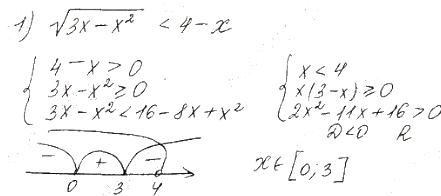 1) √(3x-x²) < 4-x
{ 4-x>0
3x-x²≥0
3x-x²<16-8x+x²
{ x<4
x(3-x)≥0
2x²-11x+16>0
D<0 R
- + -
0 3 4
x∈[0;3]